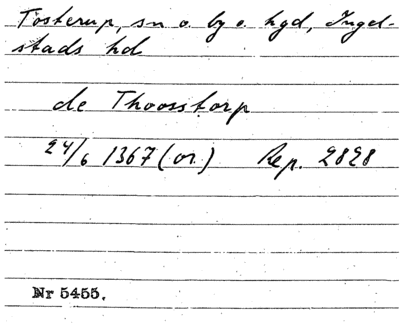 Tosterup, sn o. by o. hgd, Ingel-
stads hd
de Thoosstorp
24/6 1367 (or.) Rep. 2828
Nr 5455.